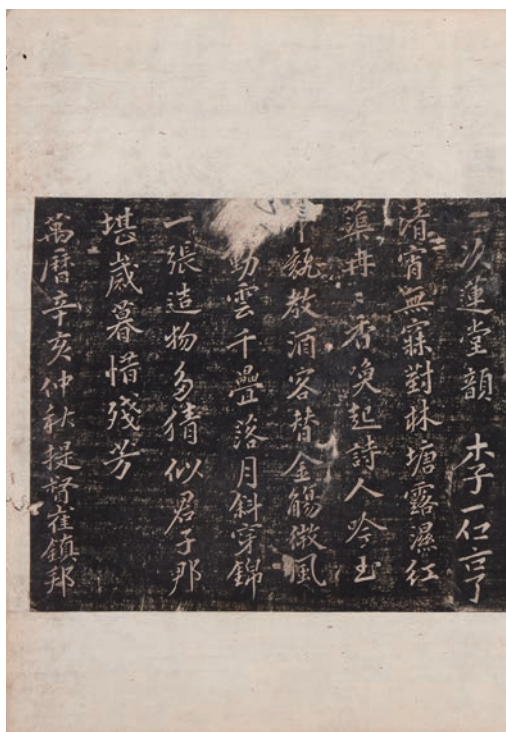 次蓮堂韻 李仁亨
清宵無寐對林塘露濕紅
蕖冉〻香喚起詩人吟玉
教酒客替金觴微風
動雲千疊落月斜穿錦
一張造物多猜似君子那
堪歲暮惜殘芳
萬曆辛亥仲秋提督崔鎮邦